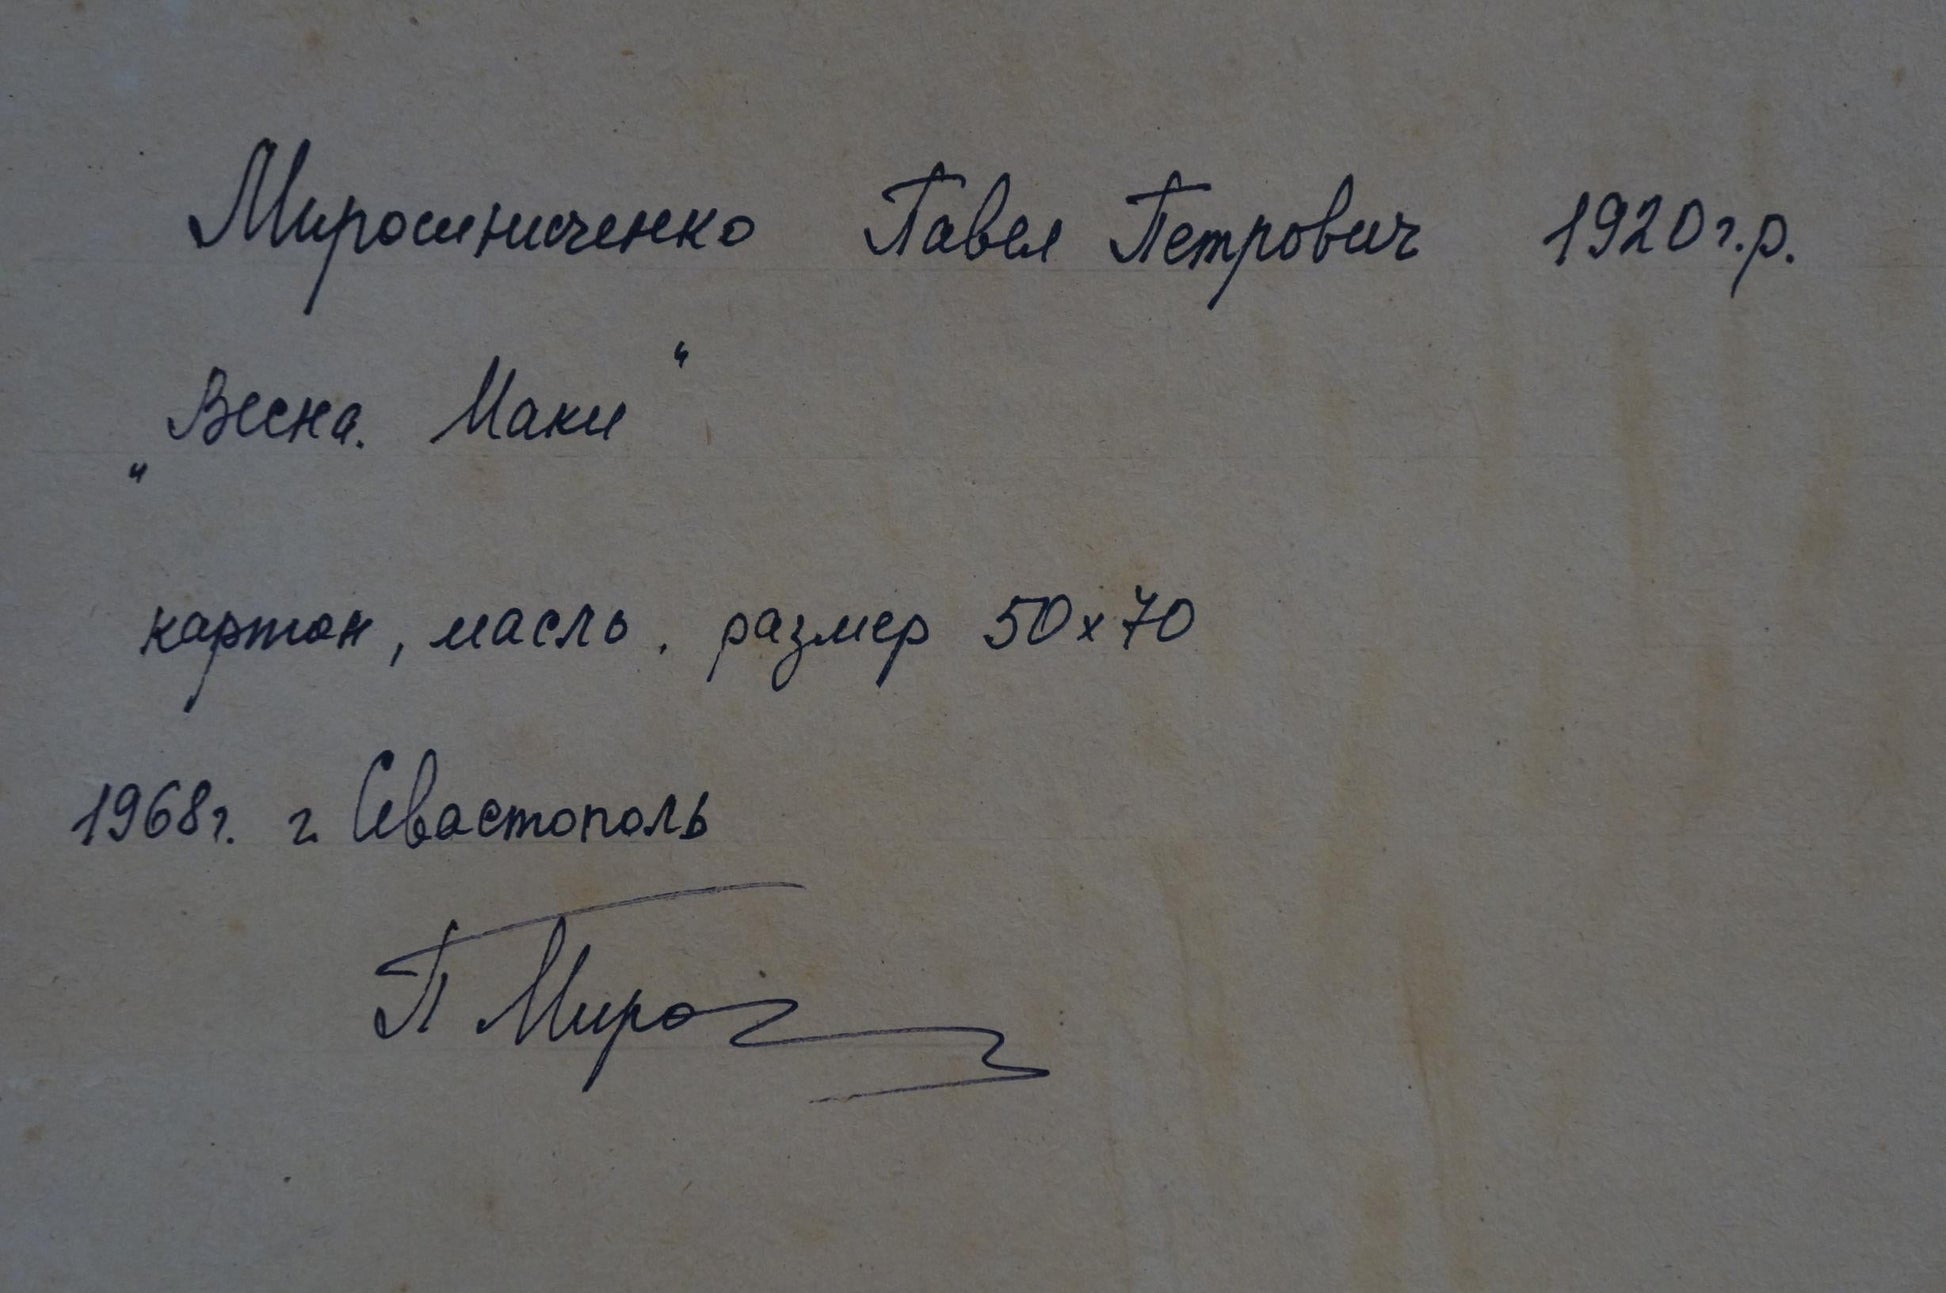 Мирошниченко Павел Петрович 1920 г.р.
„Весна. Маки“
картон, масло. размер 50х70
1968г. г. Севастополь
П Миро